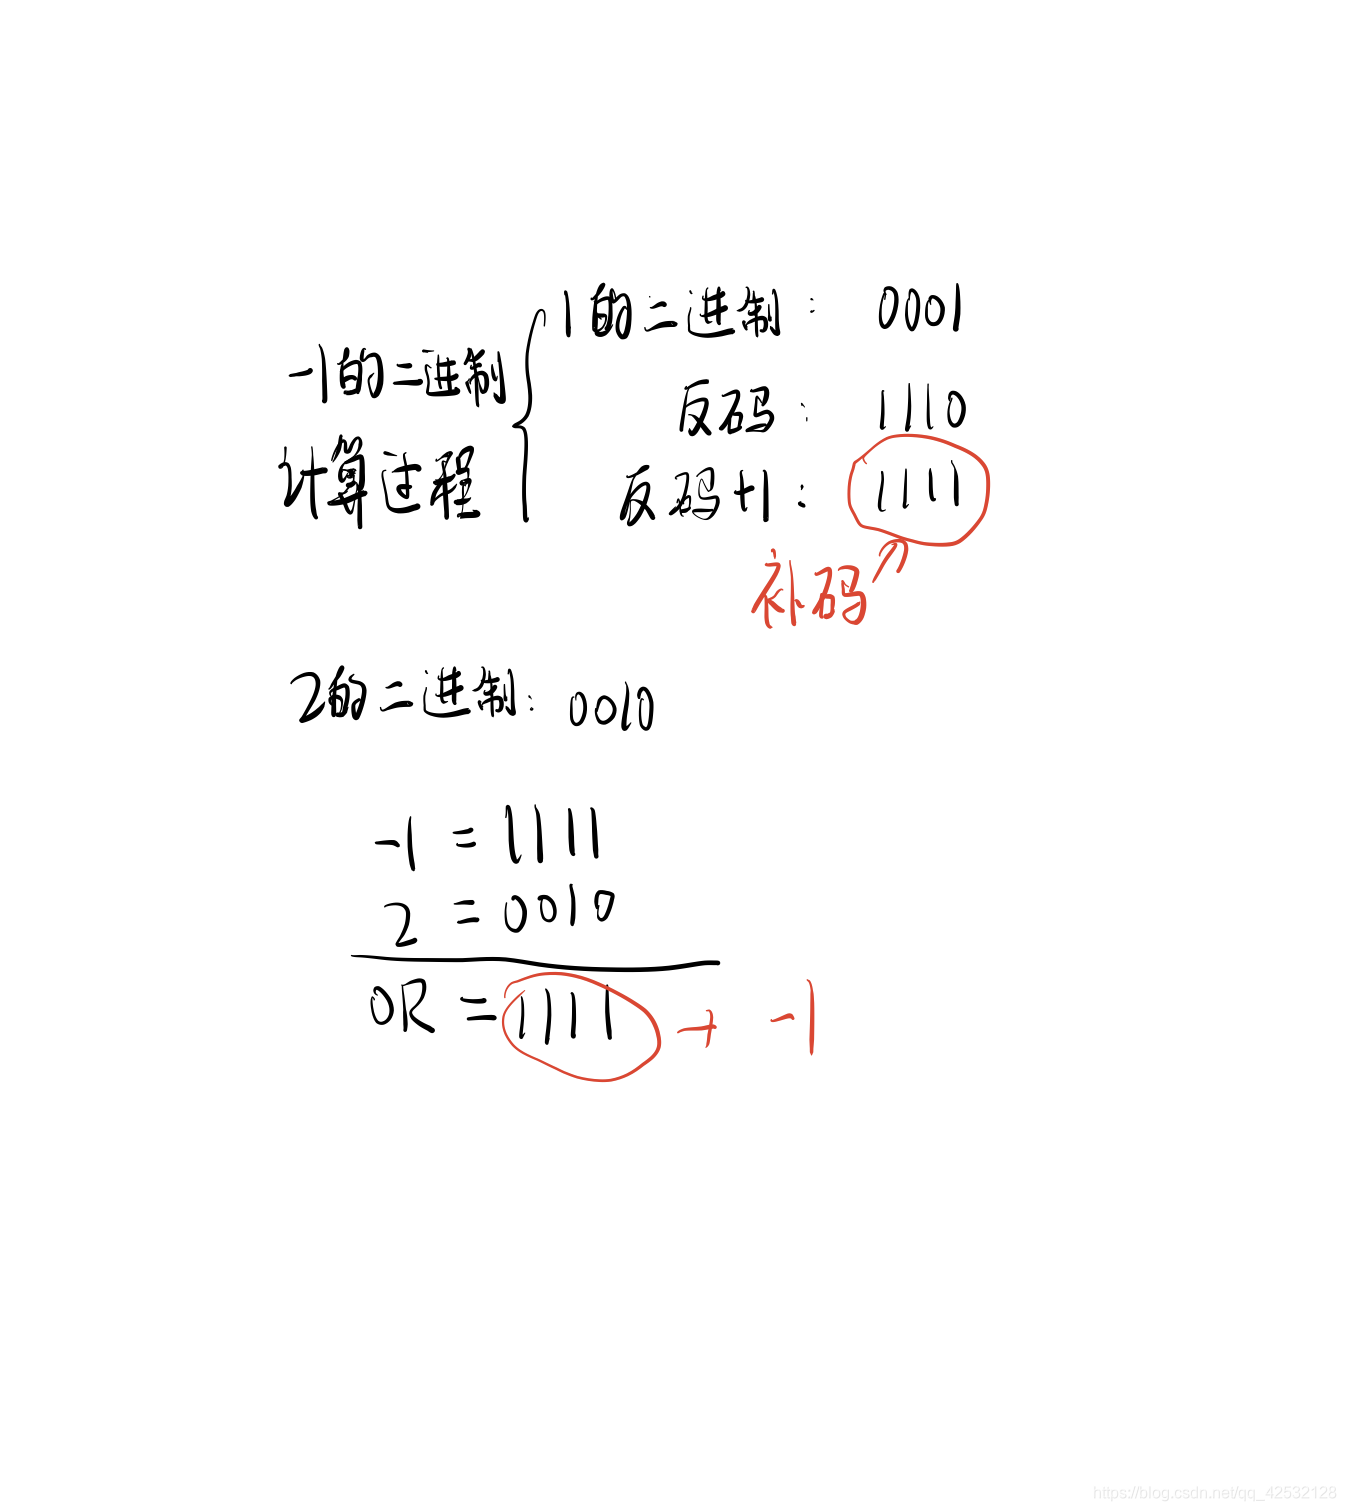 1的二进制： 0001
-1的二进制
反码： 1110
计算过程
反码+1： 1111
补码
2的二进制： 0010
-1 = 1111
2 = 0010
OR = 1111 → -1
https://blog.csdn.net/qq_42532128